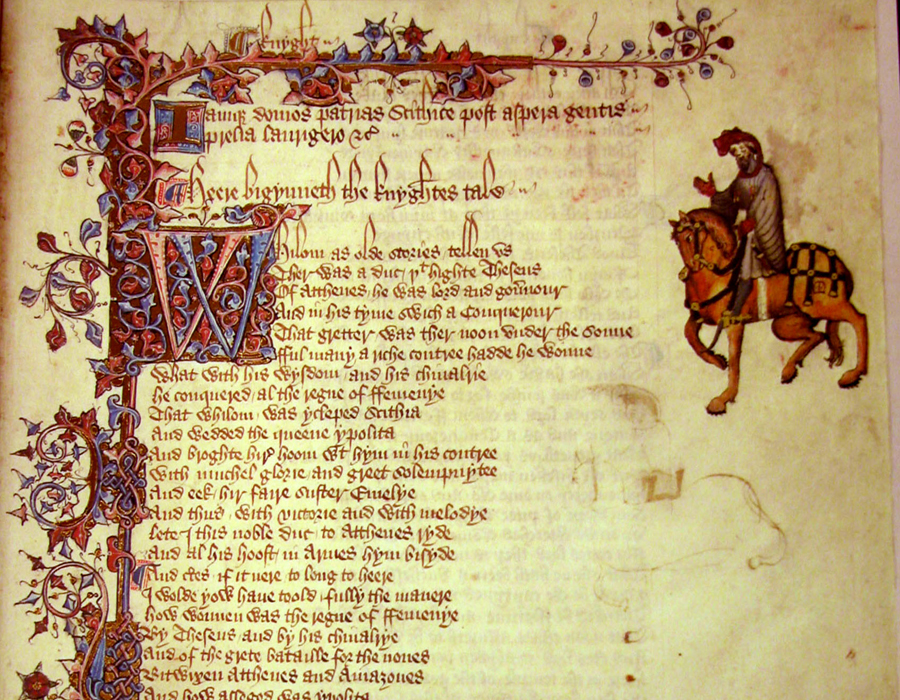 Knyght
Iamq; domos patrias Scithice post aspera gentis
prelia laurigero &c
Heere bigynneth the knyghtes tale
Whilom as olde stories tellen vs
Ther was a duc, yt highte Theseus
Of Atthenes he was lord and gouernour
And in his tyme swich a Conquerour
That gretter was ther noon vnder the sonne
fful many a riche contree hadde he wonne
What with his wysdom and his chiualrie
he conquered al the regne of ffemenye
That whilom was ycleped Scithia
And wedded the queene ypolita
And broghte hir hoom wt hym in his contree
With muchel glorie and greet solempnytee
And eek hir faire suster Emelye
And thus with victorie and with melodye
Lete I this noble duc to Atthenes ryde
And al his hoost in Armes hym bisyde
And certes if it nere to long to heere
I wolde yow haue toold fully the manere
how wonnen was the regne of ffemenye
By Theseus and by his chiualrye
And of the grete bataille for the nones
Bitwixen Atthenes and Amazones
And how asseged was ypolita